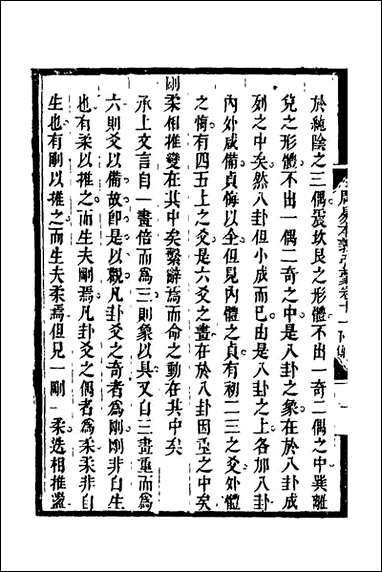 於純陰之三偶震坎艮之形體不出一奇二偶之中巽離
兌之形體不出一偶二奇之中是八卦之象在於八卦成
列之中矣然八卦但小成而已由是八卦之上各加八卦
內外咸備貞悔以全但見內體之貞有初二三之爻外體
之悔有四五上之爻是六爻之畫在於八卦因重之中矣
剛柔相推變在其中矣繫辭焉而命之動在其中矣
承上文言自一畫倍而爲三則象以具又自三畫重而爲
六則爻以備故卽是以觀凡卦爻之奇者爲剛剛非自生
也有柔以推之而生夫剛焉凡卦爻之偶者爲柔柔非自
生也有剛以推之而生夫柔焉但見一剛一柔迭相推盪